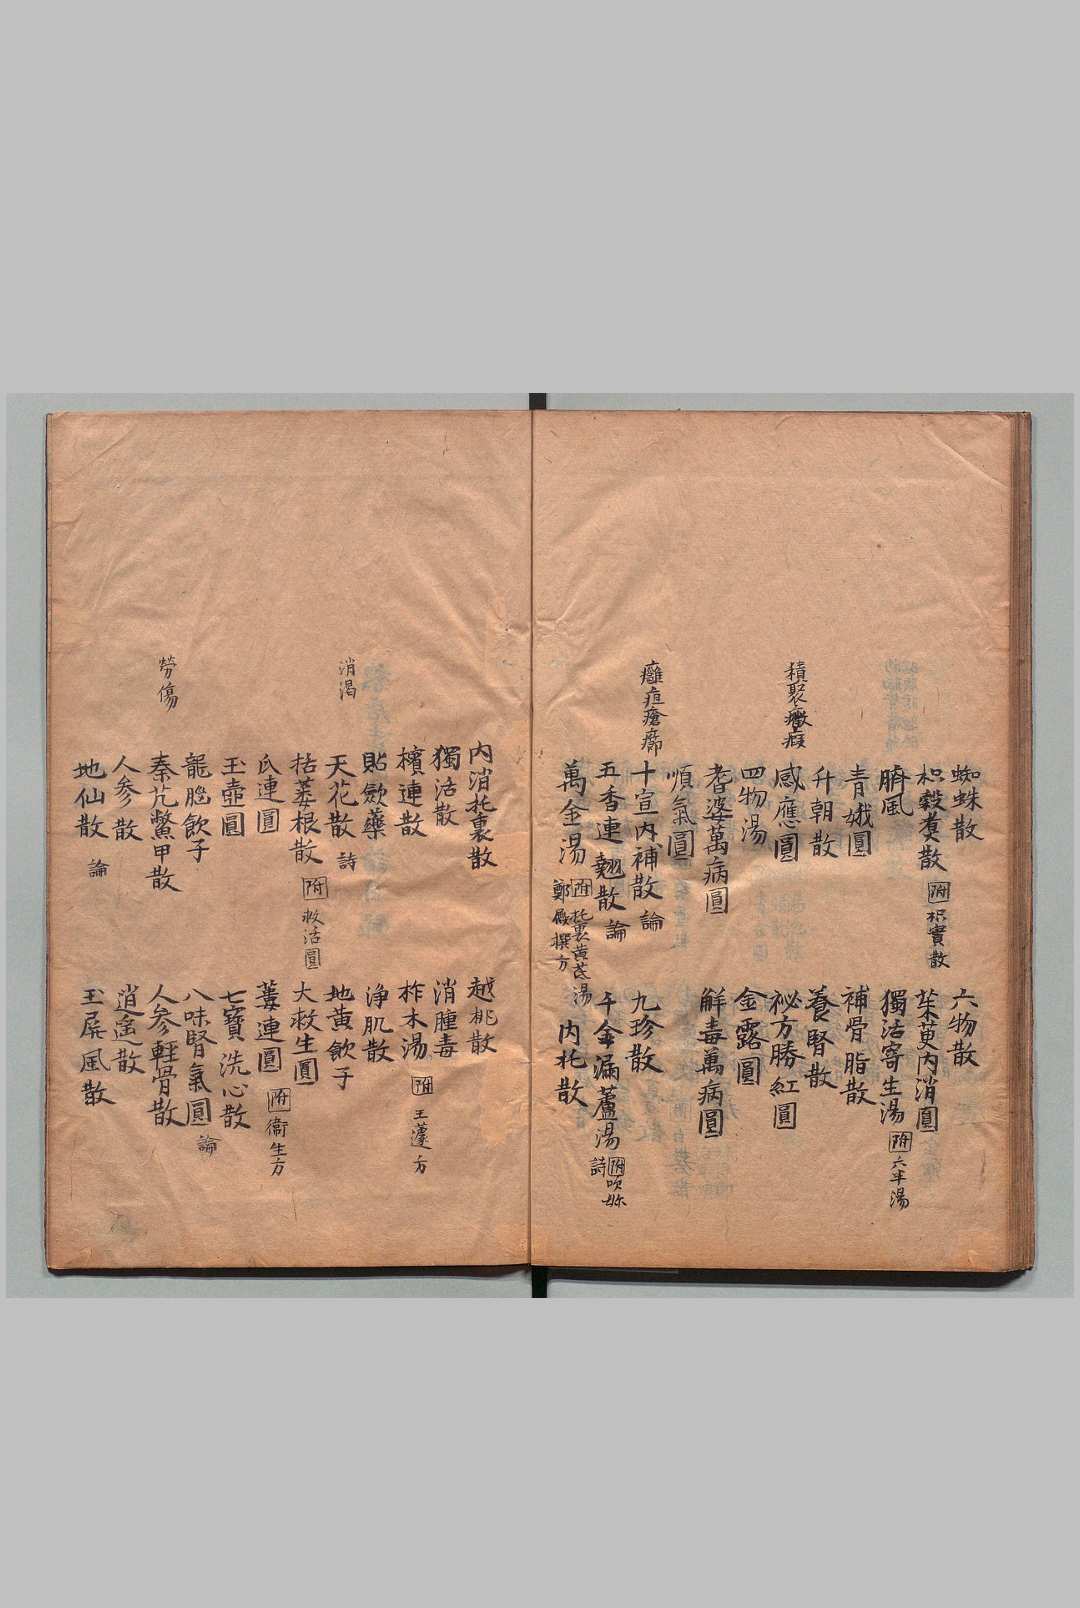 蜘蛛散
六物散
枳殼煑散 附 枳實散
茱萸內消圓
臍風
獨活寄生湯 附 六半湯
青娥圓
補骨脂散
升朝散
養腎散
積聚癥瘕
感應圓
祕方勝紅圓
四物湯
金露圓
耆婆萬病圓
解毒萬病圓
順氣圓
癰疽瘡癤
十宣內補散 論
九珍散
五香連翹散 論
千金漏蘆湯 附 吹奶 詩
萬金湯 附 托裏黄芪湯 鄭 撰方
內托散
內消托裏散
越桃散
獨活散
消腫毒
檳連散
柞木湯 附 王蘧方
貼歛藥
淨肌散
消渴
天花散 詩
地黄飲子
括蔞根散 附 救活圓
大救生圓
瓜連圓
蔞連圓 附 衞生方
玉壺圓
七寶洗心散
龍腦飲子
八味腎氣圓 論
勞傷
秦艽鱉甲散
人參輕骨散
人參散
逍遙散
地仙散 論
玉屏風散